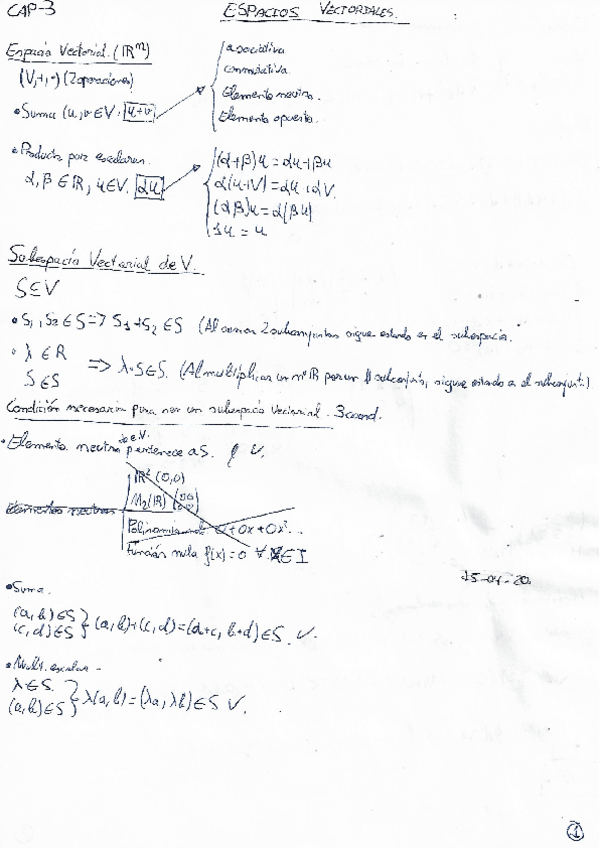 CAP-3
ESPACIOS VECTORIALES.
Espacio Vectorial. (IR^n)
(V,+,·) (2 operaciones)
• Suma (u,v ∈ V. u+v
asociativa
conmutativa
Elemento neutro.
Elemento opuesto.
• Producto por escalares.
α, β ∈ IR, u ∈ V. αu
(α+β)u = αu+βu
α(u+V) = αu + αV.
(αβ)u = α(βu)
1u = u
Subespacio Vectorial de V.
S ⊆ V
• S1, S2 ∈ S => S1 + S2 ∈ S (Al sumar 2 subconjuntos sigue estando en el subespacio.
• λ ∈ R
S ∈ S
=> λ·S ∈ S. (Al multiplicar un nº IR por un subconjunto, sigue estando en el subconjunto.)
Condición necesaria para ser un subespacio Vectorial. 3 cond.
• Elemento neutro pertenece a S.
IR² (0,0)
M2(IR) (00 00)
Elementos neutros
Polinomio 0+0x+0x²...
Función nula f(x)=0 ∀ x ∈ I
15-04-20.
• Suma.
(a,b) ∈ S
(c,d) ∈ S
} (a,b)+(c,d)=(a+c, b+d) ∈ S. V.
• Mult. escalar -
λ ∈ S.
(a,b) ∈ S
} λ(a,b)=(λa, λb) ∈ S V.
1